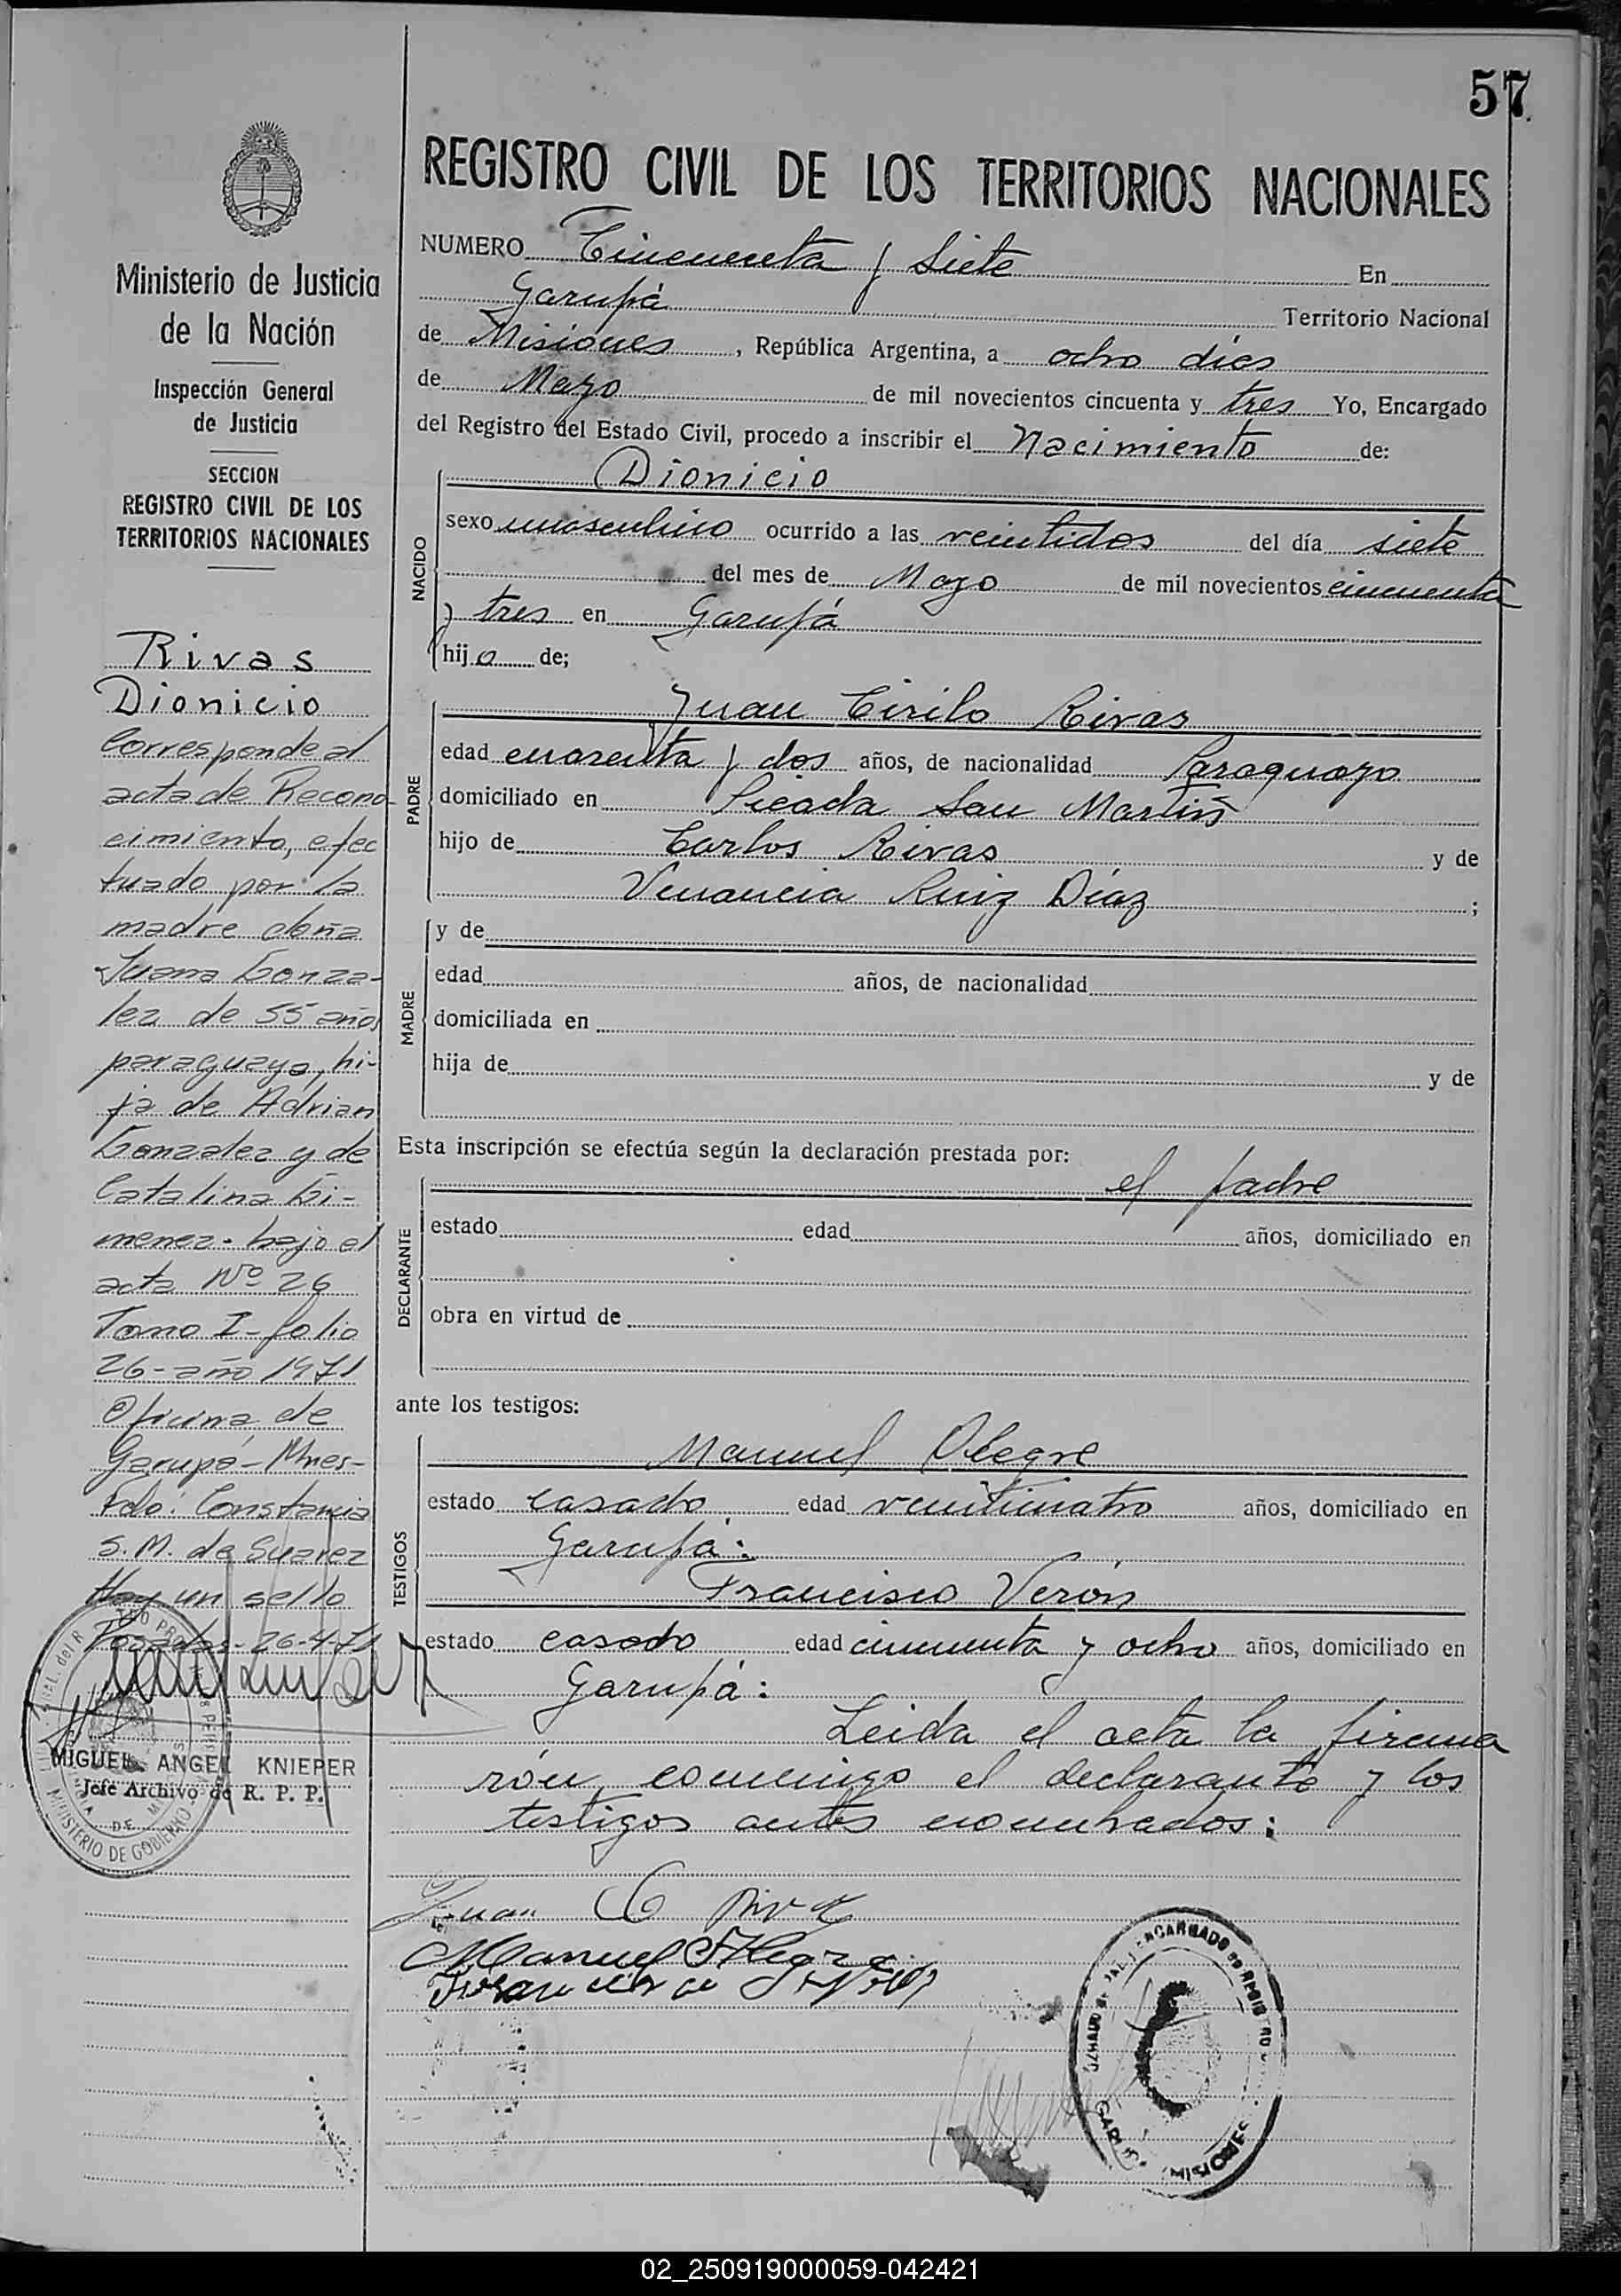 57
REGISTRO CIVIL DE LOS TERRITORIOS NACIONALES
Ministerio de Justicia
de la Nación
Inspección General
de Justicia
SECCION
REGISTRO CIVIL DE LOS
TERRITORIOS NACIONALES
Rivas
Dionicio
Corresponde al
acta de Recono
cimiento, efec
tuado por la
madre doña
Juana Gonza-
lez de 55 años
paraguaya, hi-
ja de Adrian
Gonzalez y de
Catalina Gi-
menez - bajo el
acta Nº 26
Tomo I - folio
26 - año 1971
Oficina de
Garupá - Mnes-
Fdo: Constancia
S. M. de Suarez
Hay un sello
Posadas - 26-4-71
MIGUEL ANGEL KNIEPER
Jefe Archivo de R. P. P.
MINISTERIO DE GOBIERNO
NUMERO Cincuenta y Siete En
Garupá Territorio Nacional
de Misiones, República Argentina, a ocho dias
de Mayo de mil novecientos cincuenta y tres Yo, Encargado
del Registro del Estado Civil, procedo a inscribir el Nacimiento de:
NACIDO
Dionicio
sexo masculino ocurrido a las veintidos del día siete
del mes de Mayo de mil novecientos cincuenta
y tres en Garupá
hijo de;
PADRE
Juan Cirilo Rivas
edad cuarenta y dos años, de nacionalidad Paraguayo
domiciliado en Picada San Martín
hijo de Carlos Rivas y de
Venancia Ruiz Díaz ;
MADRE
y de
edad años, de nacionalidad
domiciliada en
hija de y de
Esta inscripción se efectúa según la declaración prestada por:
DECLARANTE
el padre
estado edad años, domiciliado en
obra en virtud de
ante los testigos:
TESTIGOS
Manuel Alegre
estado casado edad veinticuatro años, domiciliado en
Garupá:
Francisco Verón
estado casado edad cincuenta y ocho años, domiciliado en
Garupá:
Leida el acta la firma
rón, conmigo el declarante y los
testigos antes nombrados:
Juan C Rivas
Manuel Alegre
ENCARGADO
MISIONES
02_250919000059-042421